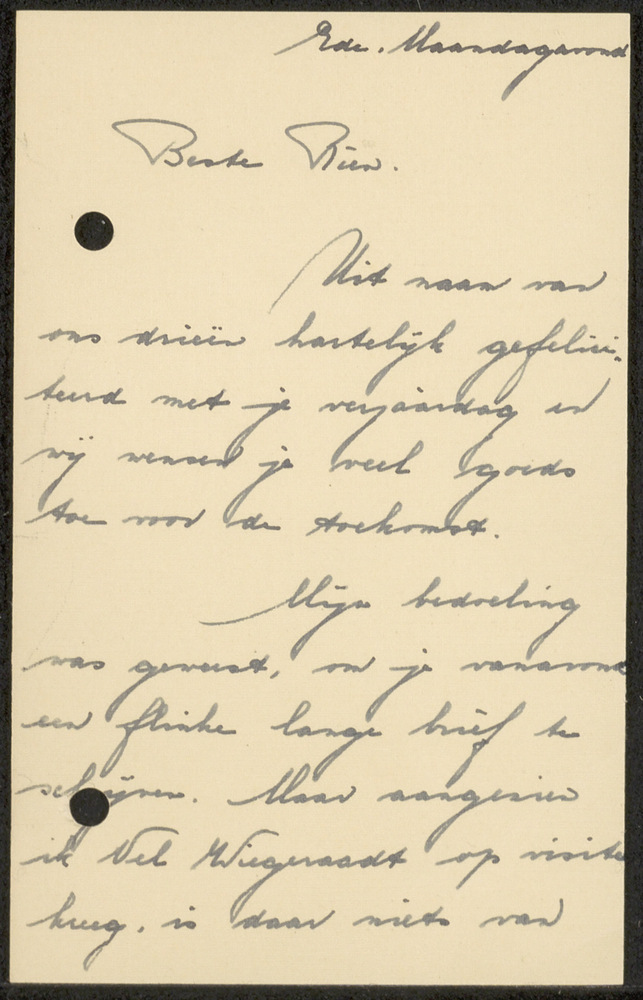 Ede. Maandagavond
Beste Rien.
Uit naam van
ons drieën hartelijk gefelici-
teerd met je verjaardag en
wij wensen je veel goeds
toe voor de toekomst.
Mijn bedoeling
was geweest, om je vanavond
een flinke lange brief te
schrijven. Maar aangezien
ik Nel Wiegeraadt op visite
kreeg, is daar niets van